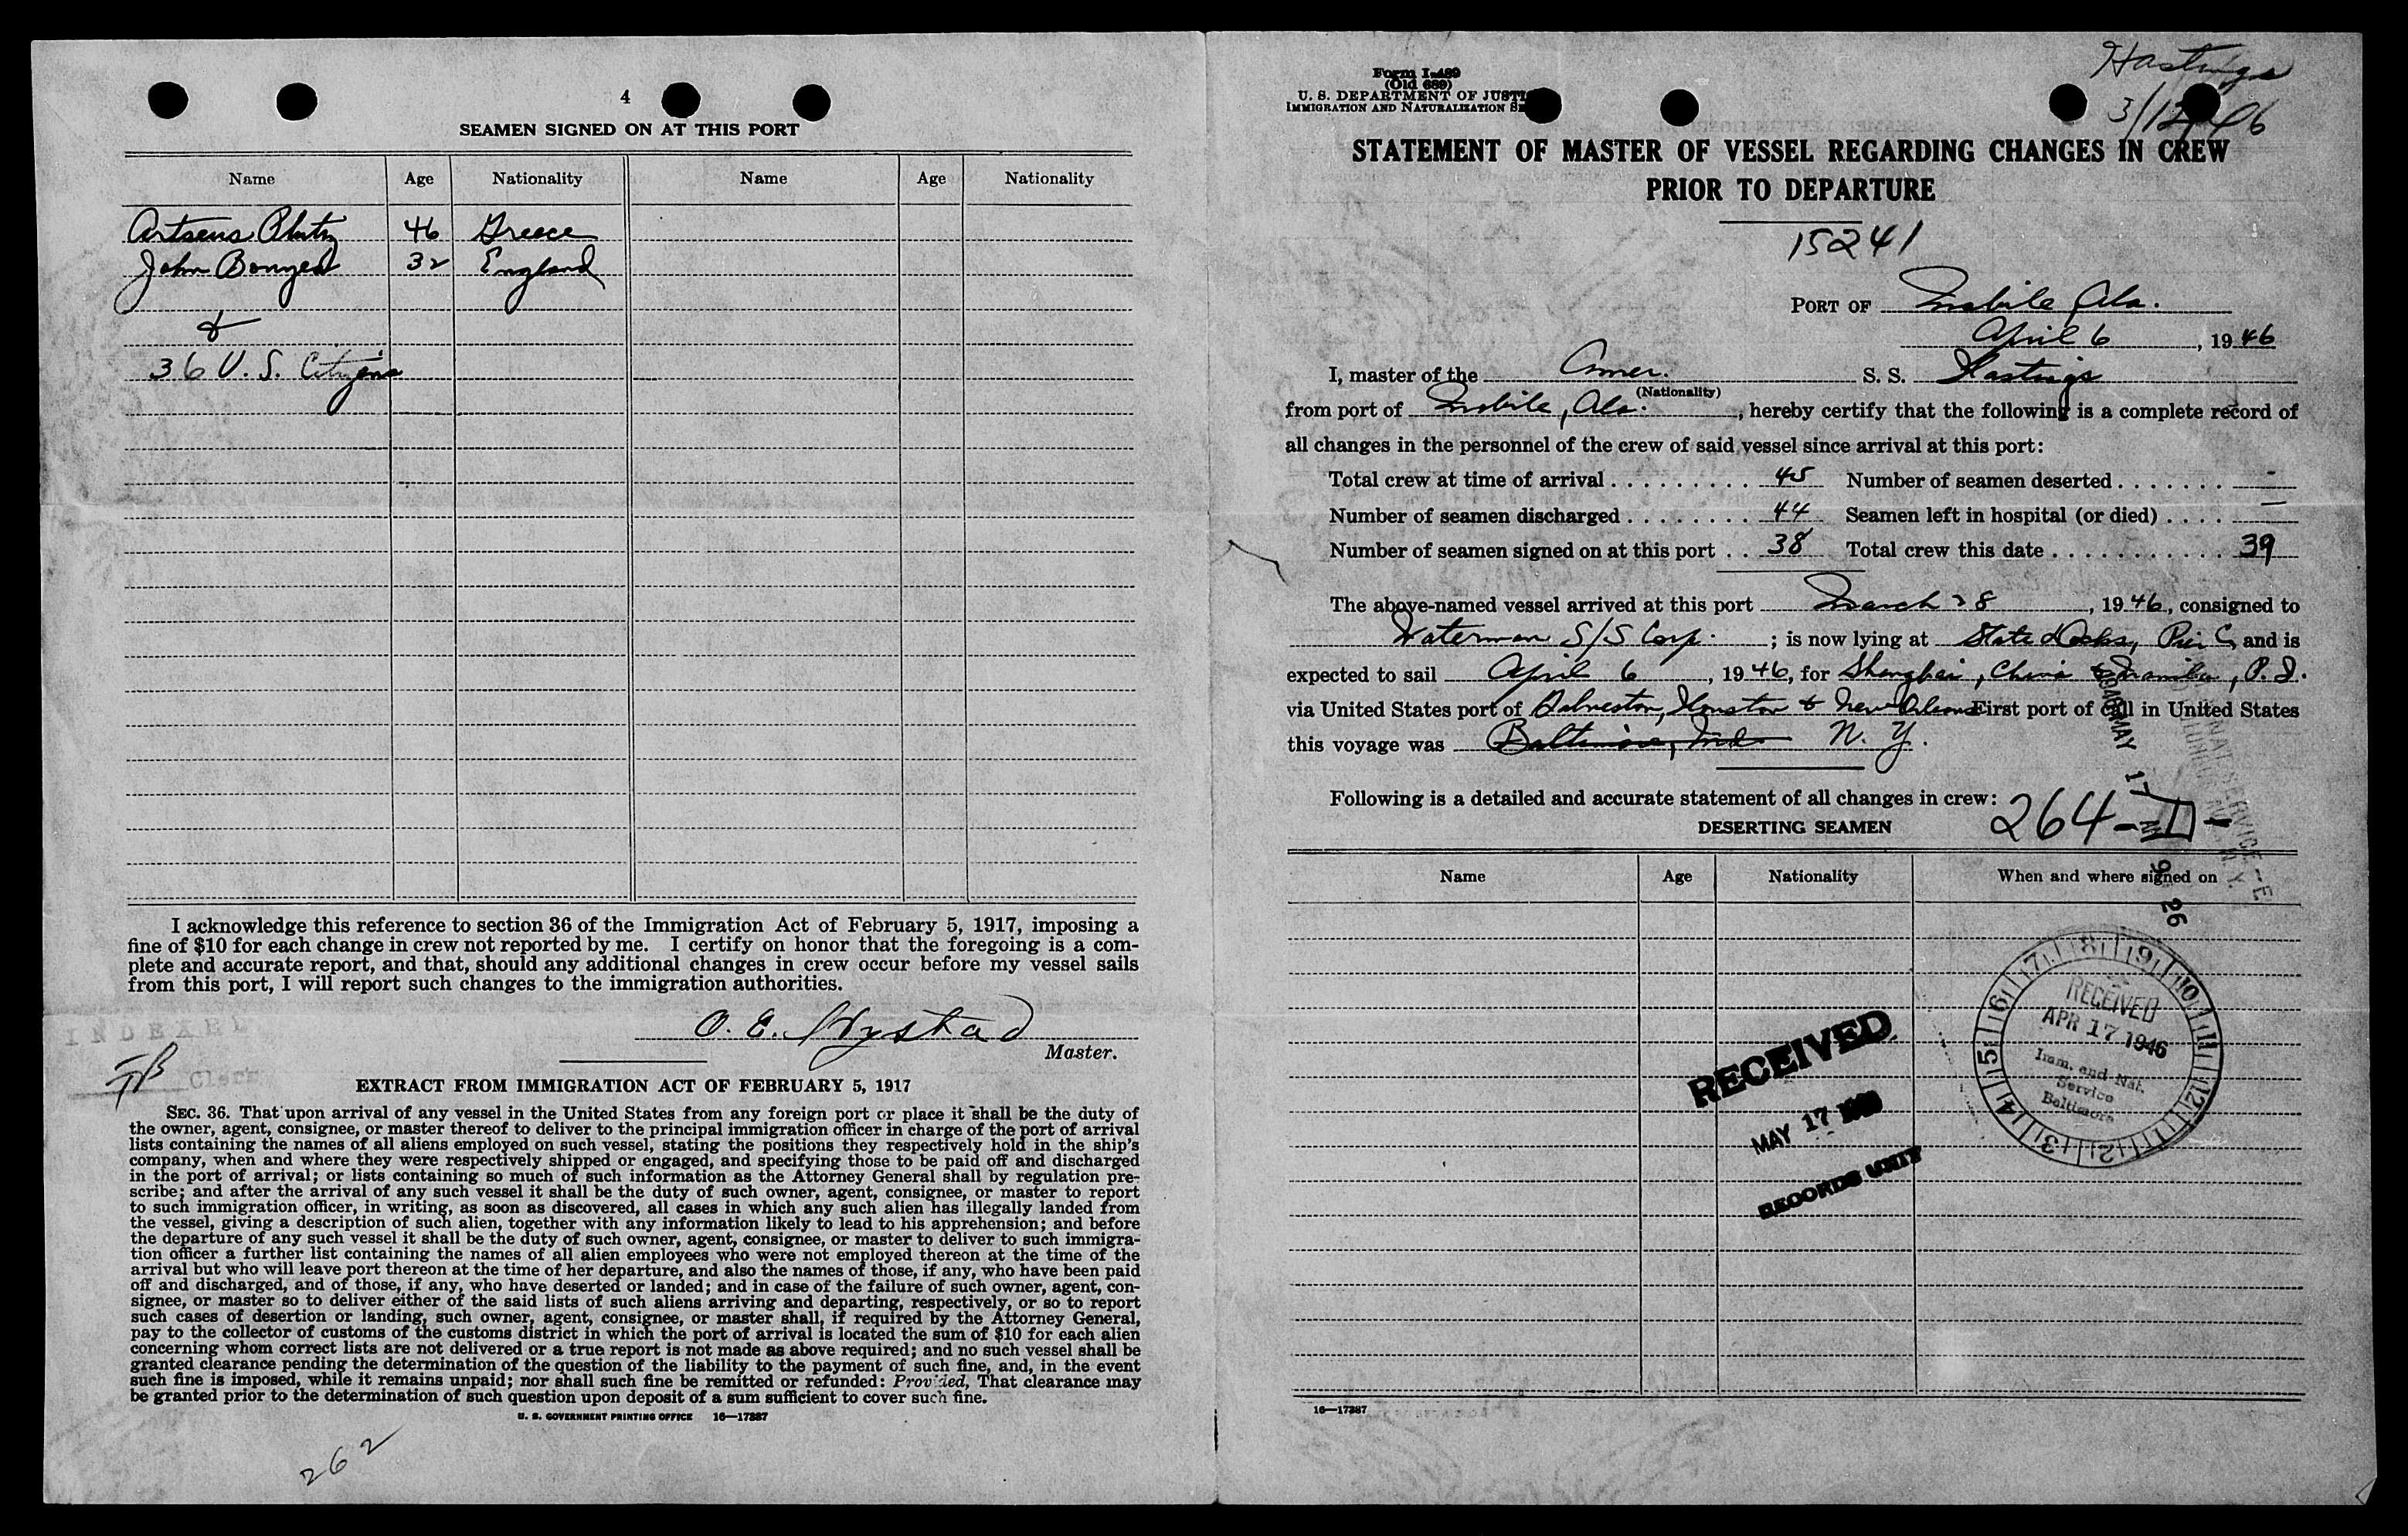 4
SEAMEN SIGNED ON AT THIS PORT
Name Age Nationality Name Age Nationality
46 Greece
John 32 England
&
36 U. S. Citizens
I acknowledge this reference to section 36 of the Immigration Act of February 5, 1917, imposing a
fine of $10 for each change in crew not reported by me. I certify on honor that the foregoing is a com-
plete and accurate report, and that, should any additional changes in crew occur before my vessel sails
from this port, I will report such changes to the immigration authorities.
INDEXED
O. E.
Master.
Clerk
EXTRACT FROM IMMIGRATION ACT OF FEBRUARY 5, 1917
SEC. 36. That upon arrival of any vessel in the United States from any foreign port or place it shall be the duty of
the owner, agent, consignee, or master thereof to deliver to the principal immigration officer in charge of the port of arrival
lists containing the names of all aliens employed on such vessel, stating the positions they respectively hold in the ship's
company, when and where they were respectively shipped or engaged, and specifying those to be paid off and discharged
in the port of arrival; or lists containing so much of such information as the Attorney General shall by regulation pre-
scribe; and after the arrival of any such vessel it shall be the duty of such owner, agent, consignee, or master to report
to such immigration officer, in writing, as soon as discovered, all cases in which any such alien has illegally landed from
the vessel, giving a description of such alien, together with any information likely to lead to his apprehension; and before
the departure of any such vessel it shall be the duty of such owner, agent, consignee, or master to deliver to such immigra-
tion officer a further list containing the names of all alien employees who were not employed thereon at the time of the
arrival but who will leave port thereon at the time of her departure, and also the names of those, if any, who have been paid
off and discharged, and of those, if any, who have deserted or landed; and in case of the failure of such owner, agent, con-
signee, or master so to deliver either of the said lists of such aliens arriving and departing, respectively, or so to report
such cases of desertion or landing, such owner, agent, consignee, or master shall, if required by the Attorney General,
pay to the collector of customs of the customs district in which the port of arrival is located the sum of $10 for each alien
concerning whom correct lists are not delivered or a true report is not made as above required; and no such vessel shall be
granted clearance pending the determination of the question of the liability to the payment of such fine, and, in the event
such fine is imposed, while it remains unpaid; nor shall such fine be remitted or refunded: Provided, That clearance may
be granted prior to the determination of such question upon deposit of a sum sufficient to cover such fine.
U. S. GOVERNMENT PRINTING OFFICE 16—17387
262
Hastings
3/12/46
Form I-489
(Old 689)
U. S. DEPARTMENT OF JUSTI
IMMIGRATION AND NATURALIZATION SE
STATEMENT OF MASTER OF VESSEL REGARDING CHANGES IN CREW
PRIOR TO DEPARTURE
15241
PORT OF Mobile Ala.
April 6, 1946
I, master of the Amer. S. S. Hastings
(Nationality)
from port of Mobile, Ala., hereby certify that the following is a complete record of
all changes in the personnel of the crew of said vessel since arrival at this port:
Total crew at time of arrival . . . . . . . . . 45 Number of seamen deserted . . . . . . . -
Number of seamen discharged . . . . . . . . 44 Seamen left in hospital (or died) . . . . —
Number of seamen signed on at this port . . 38 Total crew this date . . . . . . . . . . . 39
The above-named vessel arrived at this port March 28, 1946, consigned to
Waterman S/S Corp.; is now lying at State Docks, Pier C, and is
expected to sail April 6, 1946, for Shanghai, China & Manila, P. I.
via United States port of Galveston, Houston & New Orleans First port of call in United States
this voyage was Baltimore, Md. N. Y.
Following is a detailed and accurate statement of all changes in crew:
264-D-
1946 MAY 17 AM 9 26
DESERTING SEAMEN
Name Age Nationality When and where signed on
RECEIVED
APR 17 1946
Imm. and Nat.
Service
Baltimore
RECEIVED
MAY 17
RECORDS UNIT
16—17387